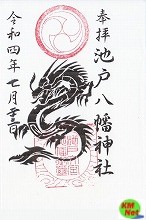 奉拝
池戸八幡神社
令和四年七月吉日
KM
Net